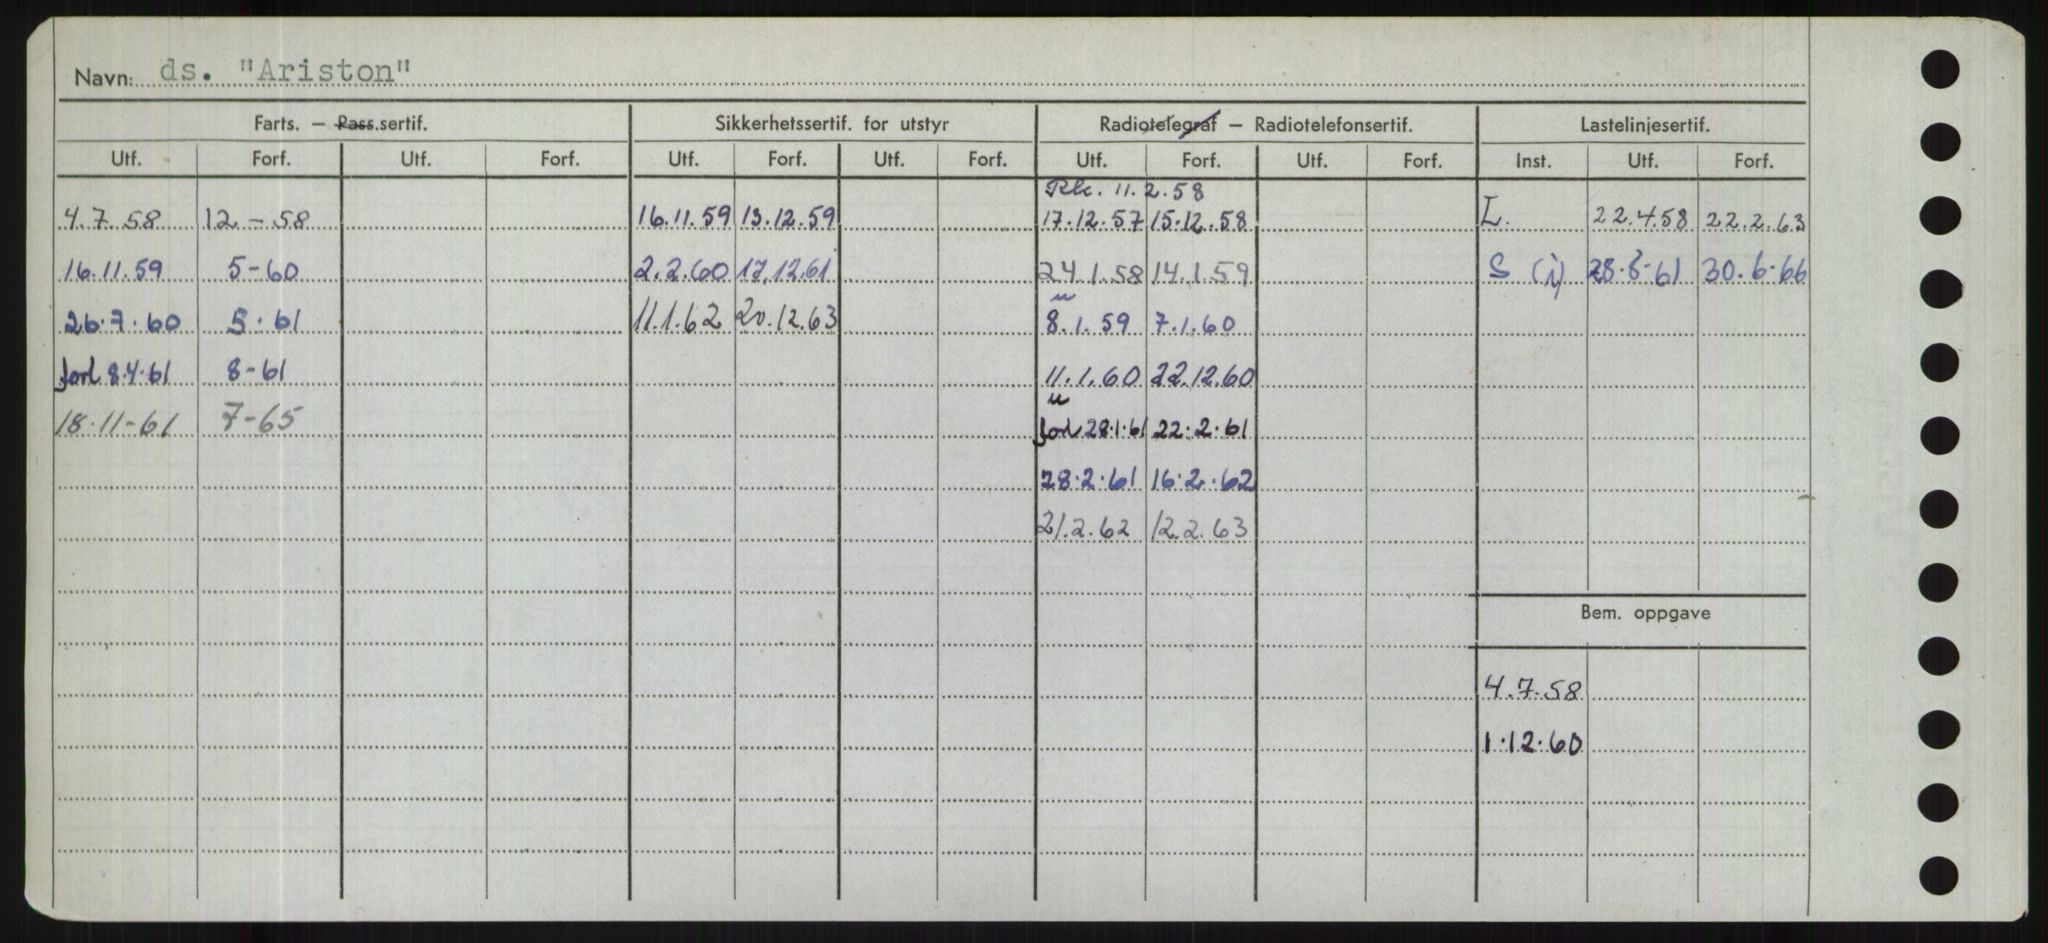 Navn: ds. "Ariston"
Farts. — Pass.sertif. Sikkerhetssertif. for utstyr Radiotelegraf — Radiotelefonsertif. Lastelinjesertif.
Utf. Forf. Utf. Forf. Utf. Forf. Utf. Forf. Utf. Forf. Utf. Forf. Inst. Utf. Forf.
11.2.58
4.7.58 12-58 16.11.59 13.12.59 17.12.57 15.12.58 L. 22.4.58 22.2.63
16.11.59 5-60 2.2.60 17.12.61 24.1.58 14.1.59 S (i) 28.6-61 30.6.66
26.7.60 5.61 11.1.62 20.12.63 8.1.59 7.1.60
forl 8.4.61 8-61 11.1.60 22.12.60
18.11-61 7-65 forl 28.1.61 22.2.61
28.2.61 16.2.62
21.2.62 12.2.63
Bem. oppgave
4.7.58
1.12.60